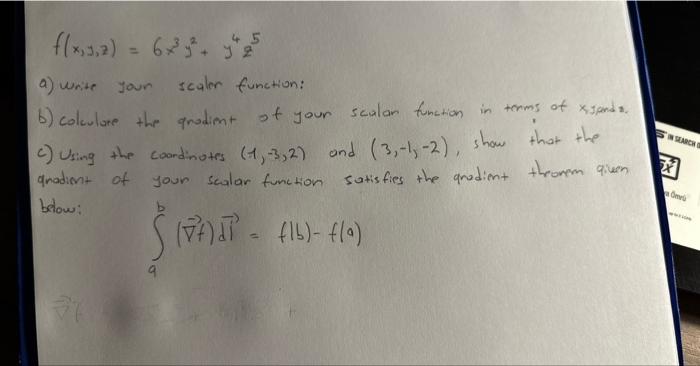 f(x,y,z) = 6x³y² + y⁴z⁵
a) write your scaler function:
b) calculate the gradient of your scalar function in terms of x,y and z.
c) Using the coordinates (1,-3,2) and (3,-1,-2), show that the
gradient of your scalar function satisfies the gradient theorem given
below:
b
∫ (∇⃗f) dl⃗ = f(b) - f(a)
a
∇⃗f
IN SEARCH